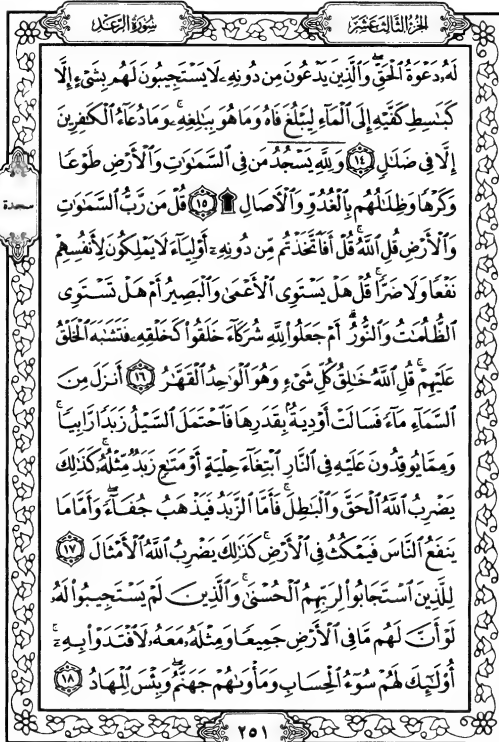 الجزء الثالث عشر
سورة الرعد
لَهُۥ دَعْوَةُ ٱلْحَقِّ ۖ وَٱلَّذِينَ يَدْعُونَ مِن دُونِهِۦ لَا يَسْتَجِيبُونَ لَهُم بِشَىْءٍ إِلَّا
كَبَـٰسِطِ كَفَّيْهِ إِلَى ٱلْمَآءِ لِيَبْلُغَ فَاهُ وَمَا هُوَ بِبَـٰلِغِهِۦ ۚ وَمَا دُعَآءُ ٱلْكَـٰفِرِينَ
إِلَّا فِى ضَلَـٰلٍ ۝١٤ وَلِلَّهِ يَسْجُدُ مَن فِى ٱلسَّمَـٰوَٰتِ وَٱلْأَرْضِ طَوْعًا
سجدة
وَكَرْهًا وَظِلَـٰلُهُم بِٱلْغُدُوِّ وَٱلْـَٔاصَالِ ۩ ۝١٥ قُلْ مَن رَّبُّ ٱلسَّمَـٰوَٰتِ
وَٱلْأَرْضِ قُلِ ٱللَّهُ ۚ قُلْ أَفَٱتَّخَذْتُم مِّن دُونِهِۦٓ أَوْلِيَآءَ لَا يَمْلِكُونَ لِأَنفُسِهِمْ
نَفْعًا وَلَا ضَرًّا ۚ قُلْ هَلْ يَسْتَوِى ٱلْأَعْمَىٰ وَٱلْبَصِيرُ أَمْ هَلْ تَسْتَوِى
ٱلظُّلُمَـٰتُ وَٱلنُّورُ ۗ أَمْ جَعَلُوا۟ لِلَّهِ شُرَكَآءَ خَلَقُوا۟ كَخَلْقِهِۦ فَتَشَـٰبَهَ ٱلْخَلْقُ
عَلَيْهِمْ ۚ قُلِ ٱللَّهُ خَـٰلِقُ كُلِّ شَىْءٍ وَهُوَ ٱلْوَٰحِدُ ٱلْقَهَّـٰرُ ۝١٦ أَنزَلَ مِنَ
ٱلسَّمَآءِ مَآءً فَسَالَتْ أَوْدِيَةٌۢ بِقَدَرِهَا فَٱحْتَمَلَ ٱلسَّيْلُ زَبَدًا رَّابِيًا ۚ
وَمِمَّا يُوقِدُونَ عَلَيْهِ فِى ٱلنَّارِ ٱبْتِغَآءَ حِلْيَةٍ أَوْ مَتَـٰعٍ زَبَدٌ مِّثْلُهُۥ ۚ كَذَٰلِكَ
يَضْرِبُ ٱللَّهُ ٱلْحَقَّ وَٱلْبَـٰطِلَ ۚ فَأَمَّا ٱلزَّبَدُ فَيَذْهَبُ جُفَآءً ۖ وَأَمَّا مَا
يَنفَعُ ٱلنَّاسَ فَيَمْكُثُ فِى ٱلْأَرْضِ ۚ كَذَٰلِكَ يَضْرِبُ ٱللَّهُ ٱلْأَمْثَالَ ۝١٧
لِلَّذِينَ ٱسْتَجَابُوا۟ لِرَبِّهِمُ ٱلْحُسْنَىٰ ۚ وَٱلَّذِينَ لَمْ يَسْتَجِيبُوا۟ لَهُۥ
لَوْ أَنَّ لَهُم مَّا فِى ٱلْأَرْضِ جَمِيعًا وَمِثْلَهُۥ مَعَهُۥ لَٱفْتَدَوْا۟ بِهِۦٓ ۚ
أُو۟لَـٰٓئِكَ لَهُمْ سُوٓءُ ٱلْحِسَابِ وَمَأْوَىٰهُمْ جَهَنَّمُ ۖ وَبِئْسَ ٱلْمِهَادُ ۝١٨
٢٥١